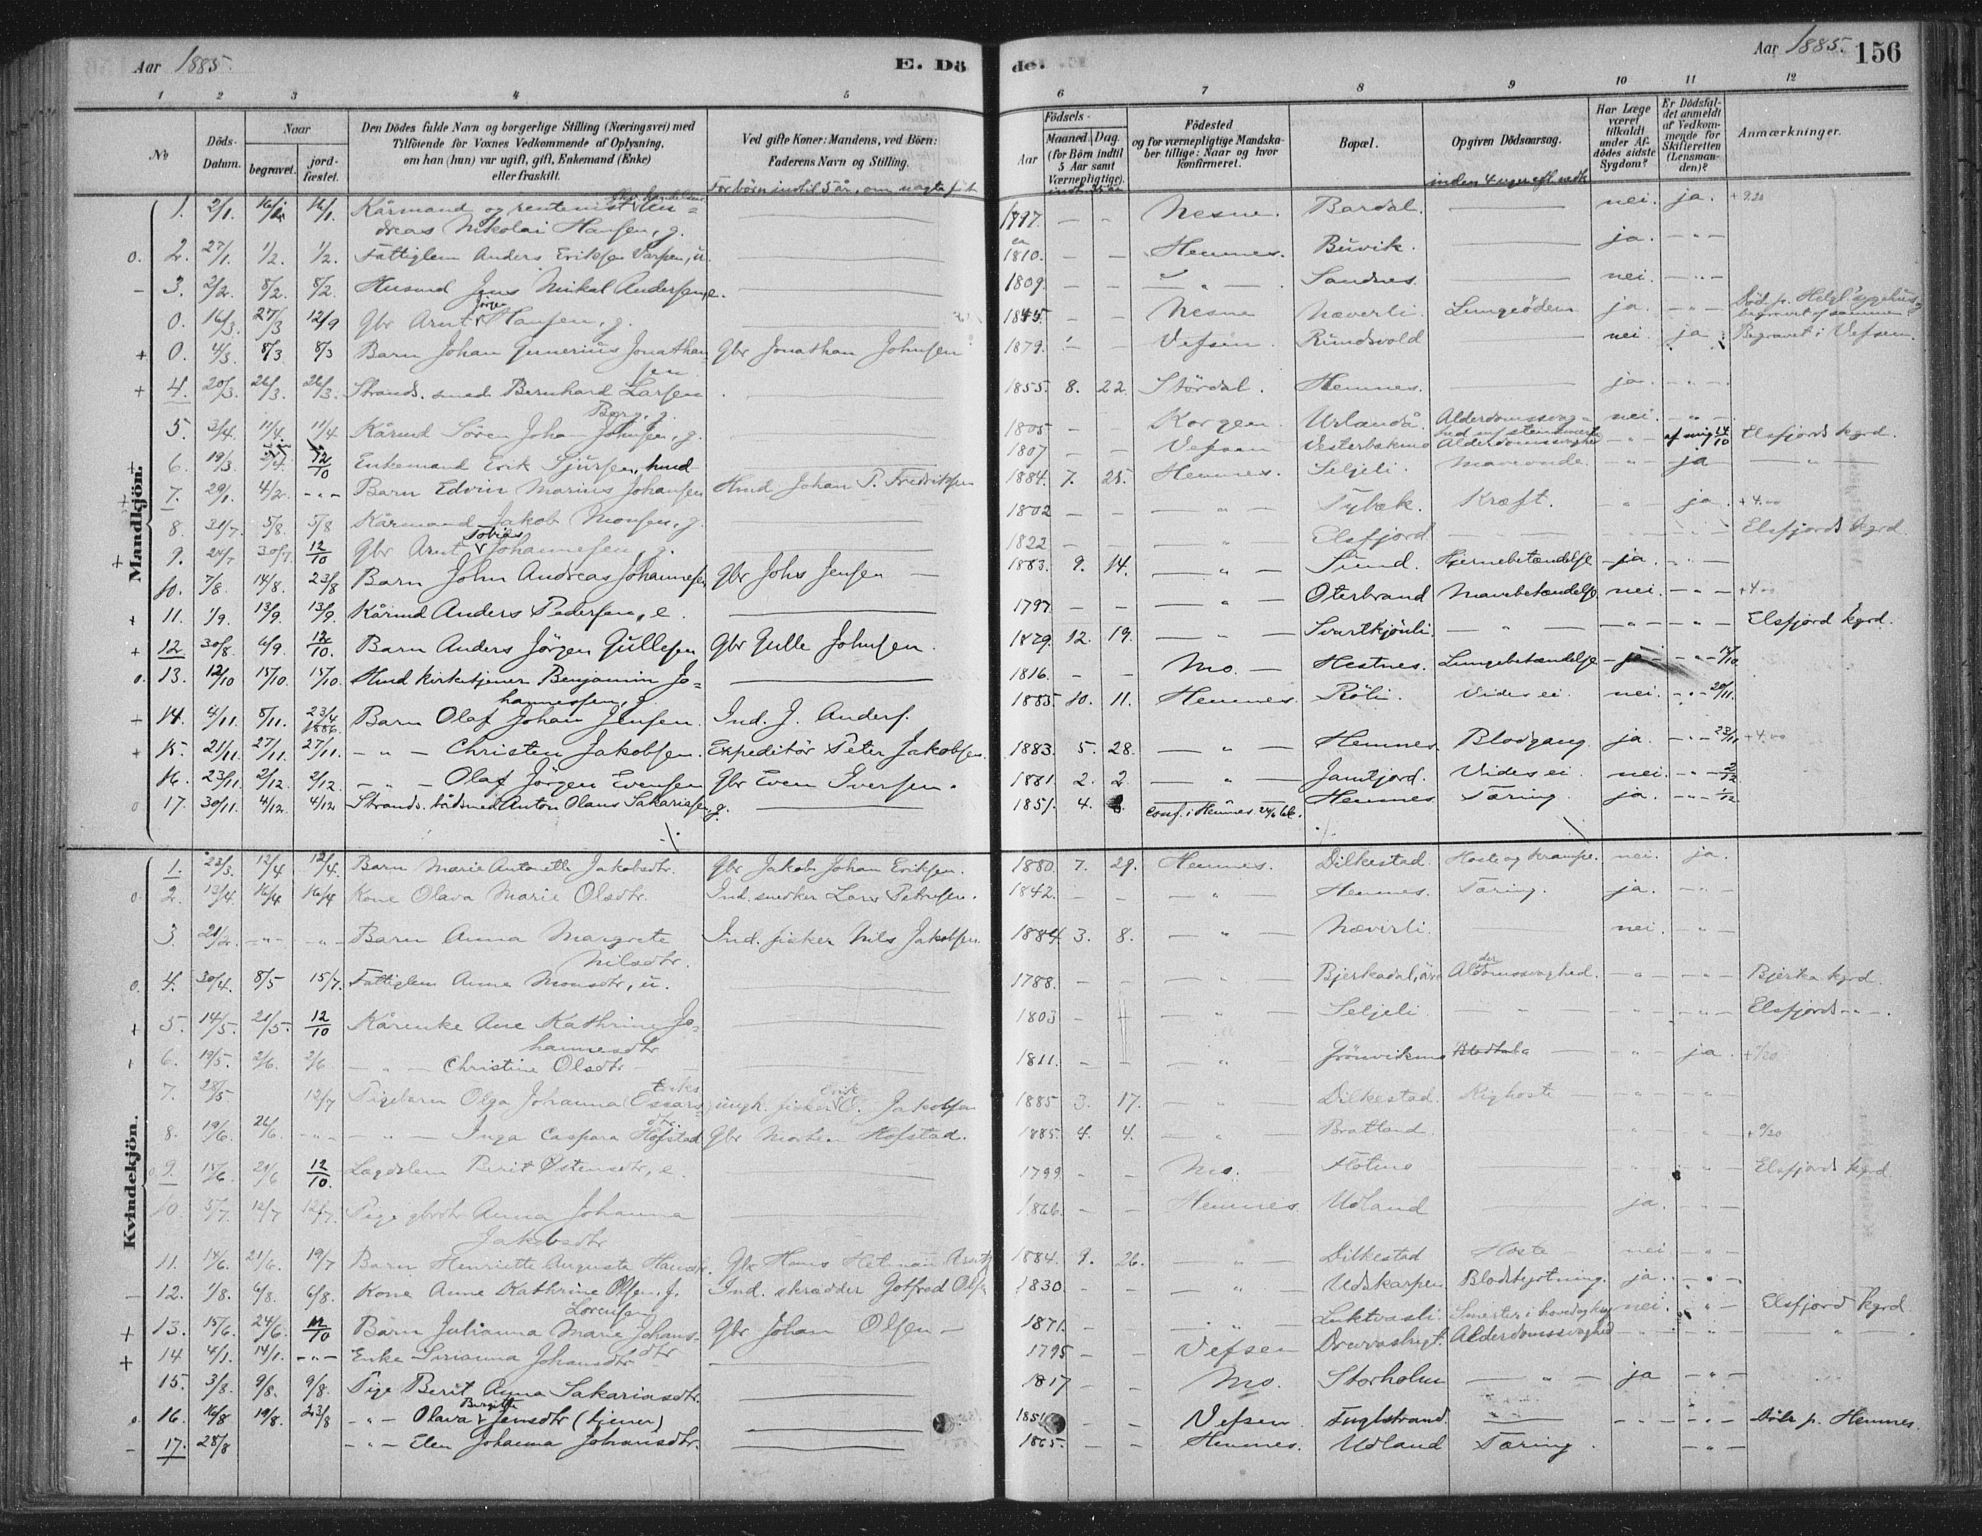 Aar 1885.
E. Dö
de.
Aar 1885.
156
1 2 3 4 5 6 7 8 9 10 11 12
No
Döds-Datum.
Naar
begravet.
jordfæstet.
Den Dödes fulde Navn og borgerlige Stilling (Næringsvei) med
Tilföiende for Voxnes Vedkommende af Oplysning,
om han (hun) var ugift, gift, Enkemand (Enke)
eller fraskilt.
Ved gifte Koner: Mandens, ved Börn:
Faderens Navn og Stilling.
For börn indtil 5 år, om
Födsels-
Aar
Maaned. Dag.
(for Börn indtil
5 Aar samt
Værnepligtige).
Födested
og for værnepligtige Mandskaber tillige: Naar og hvor
konfirmeret.
Bopæl.
Opgiven Dödsaarsag.
Har Læge
været
tilkaldt
under Afdödes sidste
Sygdom?
Er Dödsfaldet anmeldt
af Vedkommende for
Skifteretten
(Lensmanden)?
Anmærkninger.
Mandkjön.
1. 2/1. 16/1. Kårmand og rentenist An= 1797 – – Nesne. Bardal. nei. ja. +9.20
dreas Nikolai Hansen, g.
2. 27/1. 1/2. 1/2. Fattiglem Anders Eriksen Varpen, u. 1810. – – Hemnes. Buvik. ja.
3. 2/2. 8/2. 8/2. Husmd Jens Mikal Andersen, e. 1809. Sandnes. nei.
0. 16/3. 27/3 12/9 Gbr Arnt Jörgen Hansen, g. 1845. Nesne Næverli. Lungeödem ja. Död p. Helgl. sygehus
0. 4/3. 8/3 8/3 Barn Johan Gunerius Jonathan= Gbr Jonathan Johnsen 1879. Vefsen Rundsvold nei. ja. Begravet i Vefsen.
sen
4. 20/3. 26/3. 26/3. Strands. smed Bernhard Larsen 1855. 8. 22. Stördal. Hemnes. ja.
Berg, g.
5. 3/4. 11/4. 11/4. Kårmd Sören Johan Johnsen, g. 1805 Korgen Urlandå Alderdomssvag= nei.
6. 19/3. 5/4. 12/10 Enkemand Erik Sjursen, husmd 1807 Vefsen Vesterbukmo Alderdomssvaghed 14/10 Elsfjords kgrd.
7. 29/1. 4/2. Barn Edvin Marius Johansen Hmd Johan P. Fredriksen 1884. 7. 25. Hemnes. Seljeli. Maveonde. ja
8. 31/7. 5/8. 5/8 Kårmand Jakob Monsen, g. 1802 Tybæk. Kræft. ja. +4.00
9. 24/7 30/7. 12/10 Gbr Arnt Tobias Johannesen, g. 1822 Elsfjord Elsfjords kgrd
10. 7/8. 14/8. 23/8 Barn John Andreas Johannesen Gbr Johs Jensen 1883. 9. 14. Sund. Hjernebetændelse ja.
11. 1/9. 13/9. 13/9. Kårmd Anders Pedersen, e. 1797. Oterbrand Mavebetændelse nei. +4.00
12 30/8. 6/9. 12/10. Barn Anders Jörgen Gullesen Gbr Gulle Johnsen. 1879. 12. 19. Svartkjönli. Elsfjord kgrd.
13. 12/10 15/10. 15/10. Hmd kirketjener Benjamin Jo= 1816. Mo. Hestnes. Lungebetændelse ja 14/10.
hannessen, g.
14. 4/11. 8/11. 23/4 1886. Barn Olaf Johan Jensen. Ind. J. Anders. 1885. 10. 11. Hemnes. Röli. Vides ei. nei. 20/11.
15. 21/11. 27/11. 27/11. Christen Jakobsen. Expeditör Peter Jakobsen. 1883. 5. 28. Hemnes. Blodgang. ja. 23/11 +4.00
16. 23/11. 2/12. 2/12. Olaf Jörgen Evensen Gbr Even Iversen. 1881. 2. 2 Jamtjord. Vides ei. nei. 2/12
17. 30/11. 4/12. 4/12 Strands. bådsmed Anton Olaus Sakariasen, g. 1851. 4. conf. i Hemnes 24/6 66. Hemnes Tæring. ja. 1/12
Kvindekjön.
1. 23/3. 12/4 12/4. Barn Marie Antonette Jakobsdtr. Gbr Jakob Johan Eriksen. 1880. 7. 29. Hemnes. Dilkestad. Hoste og krampe. nei. ja.
2. 13/4. 16/4 16/4 Kone Olava Marie Olsdtr. Ind. snedker Lars Petersen. 1842. Hemnes. Tæring. ja.
3. 21/2. Barn Anna Margrete Ind. fisker Nils Jakobsen 1884. 3. 8. Næverli. nei.
Nilsdtr.
4. 30/4. 8/5 15/7. Fattiglem Anne Monsdtr, u. 1788. Bjerkadal, Alderdomssvaghed. Bjerka kgrd.
5. 14/5. 21/5. 12/10 Kårenke Ane Kathrine Jo= 1803 Seljeli Elsfjords
hannesdtr
6. 19/5. 2/6. 2/6. Christine Olsdtr 1811. Grönvikmo ja.
7. 28/5 12/7 Pigebarn Olga Johanna ungk. fisker Erik E. Jakobsen 1885 3. 17. Dilkestad. Kighoste
8. 19/6. 26/6. Inga Caspara Hofstad Gbr Morten Hofstad. 1885. 4. 4. Bratland.
9. 15/6 21/6 12/10. Lægdslem Berit Östensdtr, e. 1799 Mo. Flotmo Elsfjords kgrd
10. 5/7. 12/7 12/7. Pige gbrdtr Anna Johanna 1866. Hemnes. Udland ja.
Jakobsdtr
11. 14/6. 21/6. 19/7 Barn Henriette Augusta Hansdtr. Gbr Hans Hetman 1884. 9. 26. Dilkestad Hoste nei
12. 1/8. 6/8. 6/8. Kone Anne Kathrine Olsen, f. Ind. skrædder Gotfred Olsen 1830 Udskarpen. Blodstyrtning. ja.
Lorensen
13. 15/6. 24/6. 12/10 Barn Julianna Marie Johans= Gbr Johan Olsen 1871. Luktvasli. nei. Elsfjord kgrd
dtr
14 4/1. 14/1. Enke Sirianna Johansdtr 1795 Vefsen Drevvashgt. Alderdomssvaghed
15. 3/8. 9/8. 9/8. Pige Berit Anna Sakariasdtr. 1817 Mo. Storholm ja
16. 16/8 19/8. 23/8 Olava Birgitte Jensdtr (tjener) 1851 Vefsen. Fuglstrand. Hemnes.
17. 28/8 Elen Johanna Johansdtr. 1865. Hemnes. Udland Tæring.